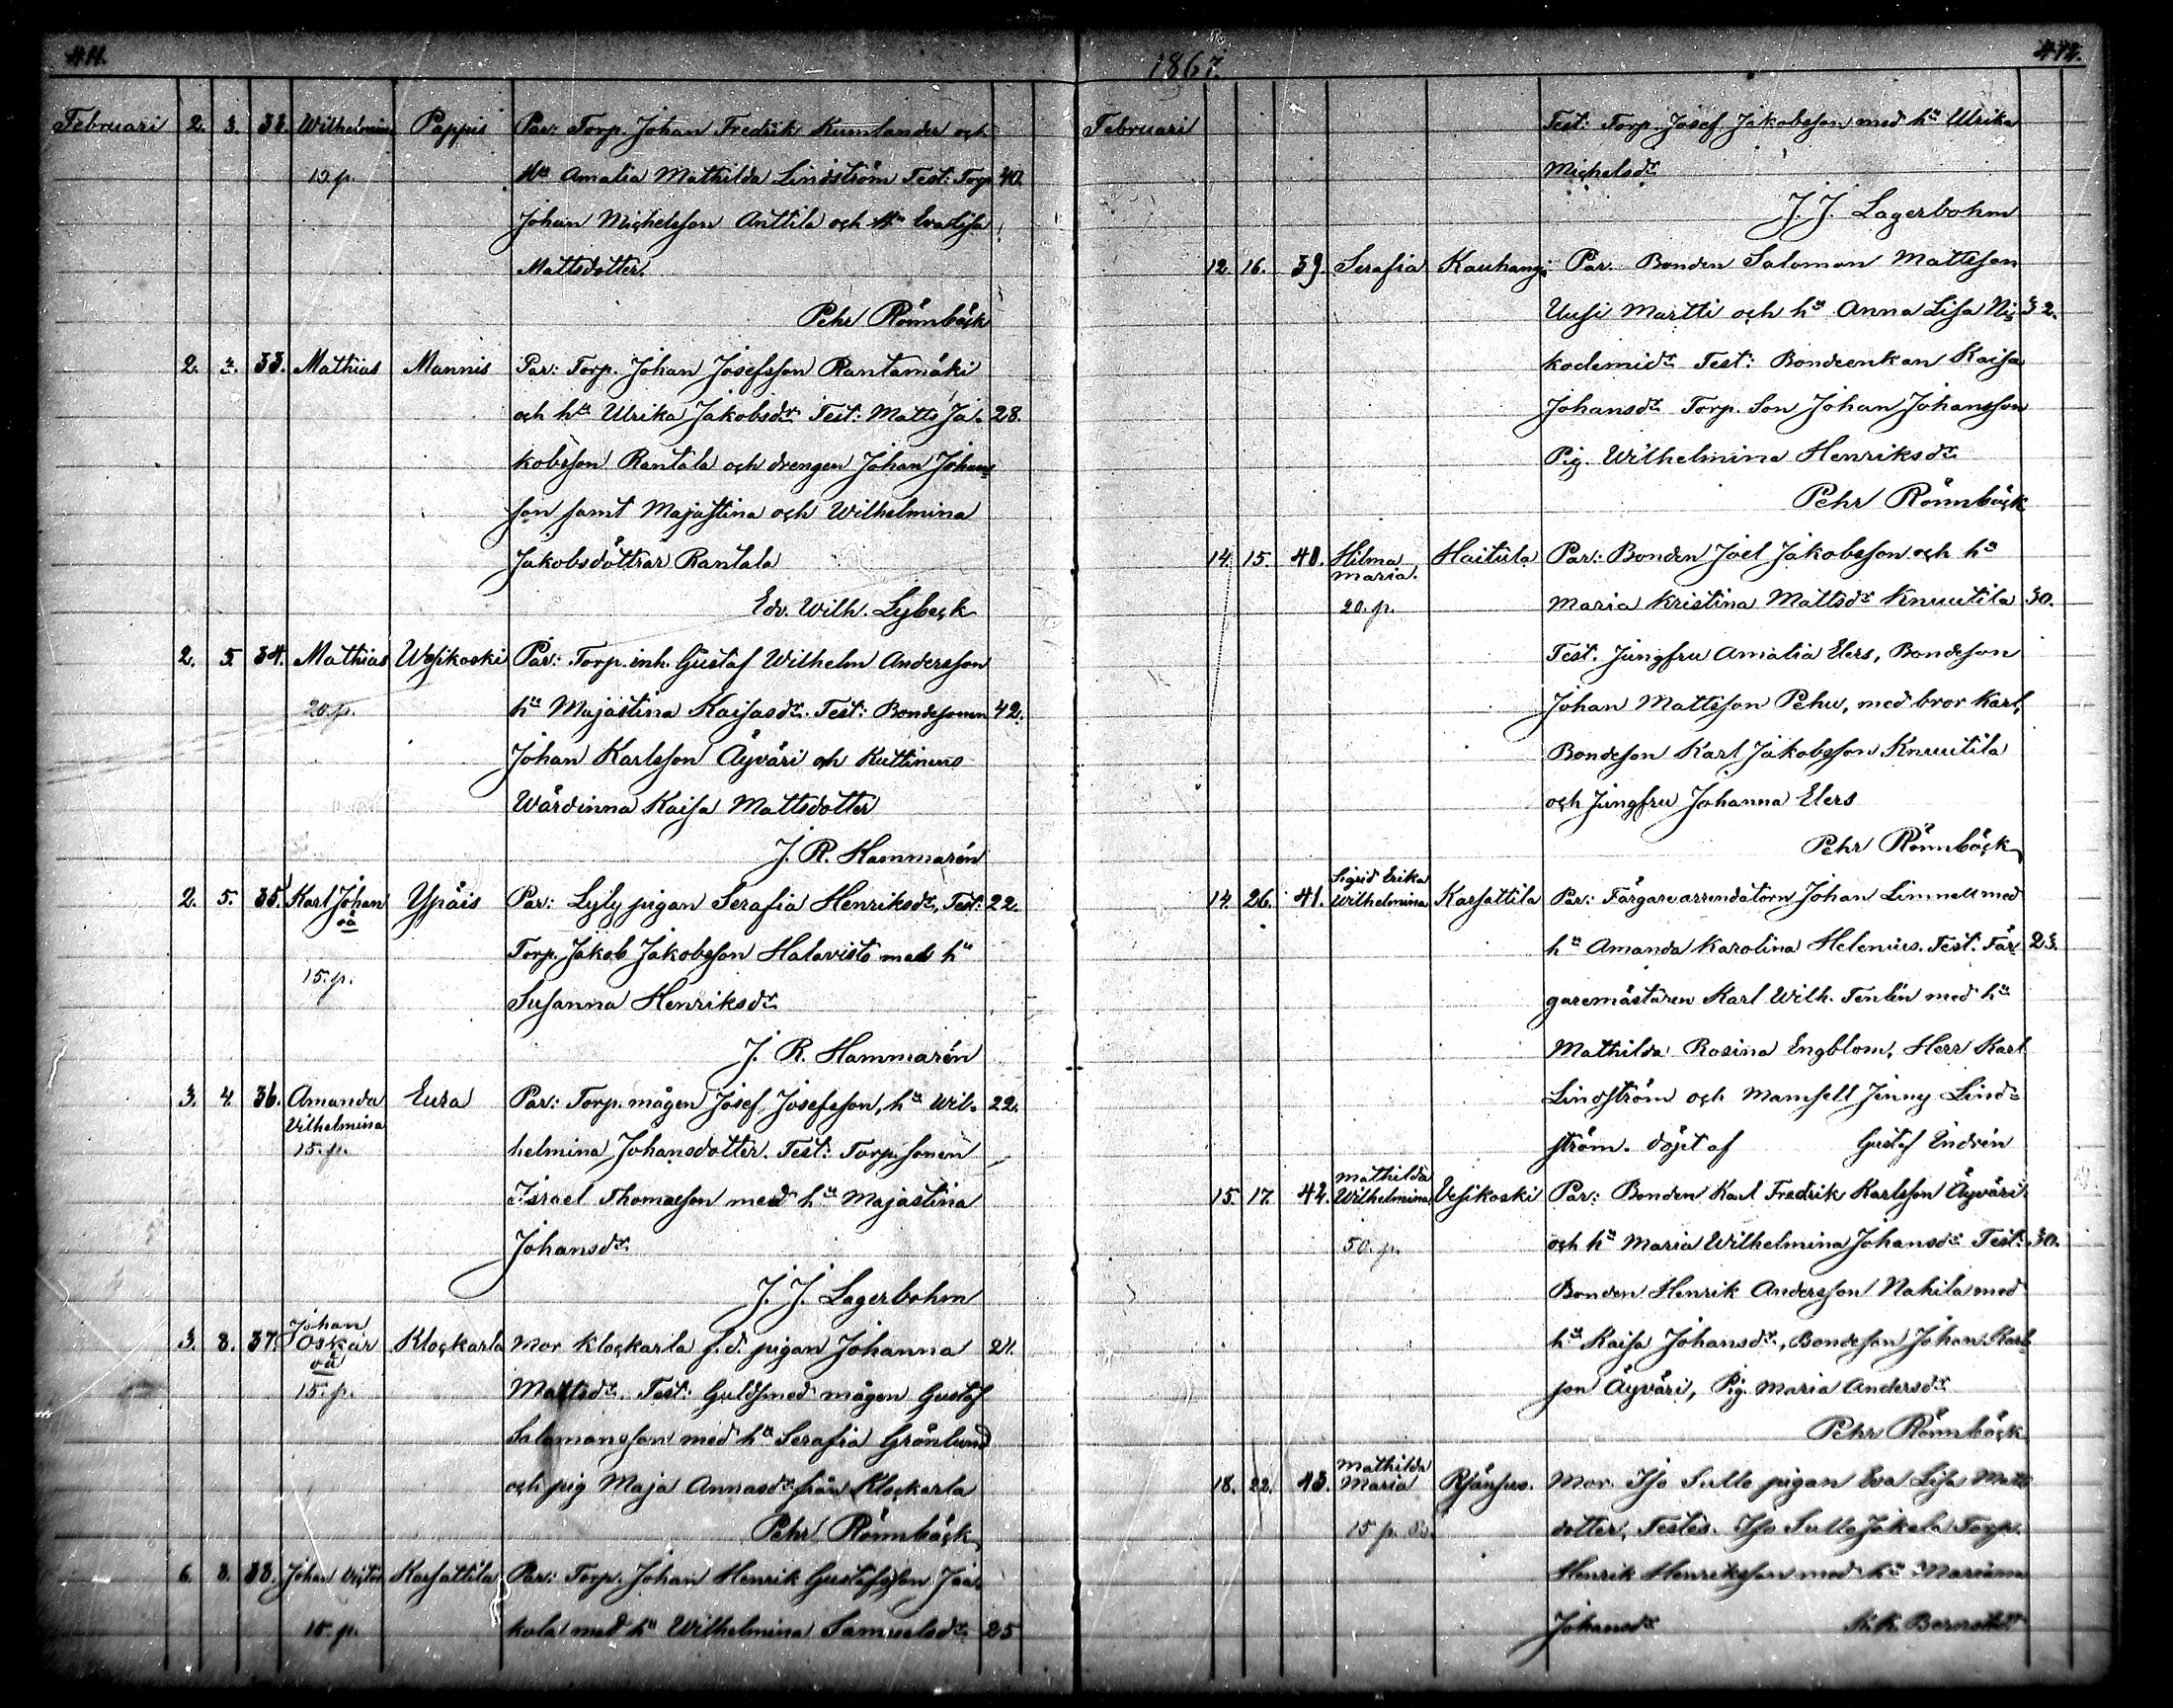 411.
Februari 2. 3. 32. Wilhelmina Pappis Par: Torp. Johan Fredrik Kumlander och
15 p. Hu Amalia Mathilda Lindström Test: Torp 40.
Johan Michelsson Anttila och Hu Evalisa
Mattsdotter.
Pehr Rönnbäck
2. 2. 33. Mathias Mannis Par: Torp. Johan Josefsson Rantamäki
och hu Ulrika Jakobsdr. Test: Matts Ja- 28.
kobsson Rantala och drengen Johan Johans-
son samt Majastina och Wilhelmina
Jakobsdöttrar Rantala
Edv. Wilh. Lybeck
2. 5. 34. Mathias Wesikoski Par: Torp. inh. Gustaf Wilhelm Andersson
20. p. hu Majastina Kaisasdr. Test: Bondesonen 42.
Johan Karlsson Äyväri och Kuttinens
Wärdinna Kaisa Mattsdotter
J. R. Hammarén
2. 5. 35. Karl Johan Ypäis Par: Lyly pigan Serafia Henriksdr, Test: 22.
oä
Torp. Jakob Jakobsson Halavisto med hu
15. p.
Susanna Henriksdr
J. R. Hammarén
3. 4. 36. Amanda Eura Par: Torp. mågen Josef Josefsson, hu Wil- 22.
Vilhelmina
15. p. helmina Johansdotter. Test: Torp. sonen
Israel Thomasson med hu Majastina
Johansdr.
J. J. Lagerbohm
Johan
3. 8. 37. Oskar Klockarla Mor Klockarla f.d. pigan Johanna 21.
oä
15. p. Mattsdr. Test: Guldsmed mågen Gustaf
Salomonsson med hu Serafia Grönlund
och pig Maja Annasdr från Klockarla
Pehr Rönnbäck
6. 8. 38. Johan Victor Karsattila Par: Torp. Johan Henrik Gustafsson Jaa-
15. p. kola med hu Wilhelmina Samuelsdr. 25
1867. 412.
Februari Test: Torp. Josef Jakobsson med hu Ulrika
Michelsdr
J. J. Lagerbohm
12. 16. 39. Serafia Kauhanpä Par. Bonden Salomon Mattsson
Uusi Martti och hu Anna Lisa Ni- 32.
kodemidr. Test: Bondeenkan Kaisa
Johansdr. Torp. Son Johan Johansson
Pig. Wilhelmina Henriksdr.
Pehr Rönnbäck
14. 15. 40. Hilma Haitula Par: Bonden Joel Jakobsson och hu
Maria.
20. p. Maria Kristina Mattsdr Knuutila 30.
Test. Jungfru Amalia Elers, Bondeson
Johan Mattsson Pehu, med bror Karl,
Bondeson Karl Jakobsson Knuutila
och Jungfru Johanna Elers
Pehr Rönnbäck
Sigrid Erika
14. 26. 41. Wilhelmina Karsattila Par: Färgarearrendatorn Johan Linnell med
hu Amanda Karolina Helenius. Test: Fär- 23.
garemästaren Karl Wilh. Tenlén med hu
Mathilda Rosina Engblom, Herr Karl
Lindström och Mamsell Jenny Lind-
ström. döpt af Gustaf Indrén
Mathilda
15. 17. 42. Wilhelmina Vesikoski Par: Bonden Karl Fredrik Karlsson Äyväri
50. p. och hu Maria Wilhelmina Johansdr Test: 30.
Bonden Henrik Andersson Nahila med
hu Kaisa Johansdr, Bondeson Johan Karls-
son Äyväri, Pig. Maria Andersdr
Pehr Rönnbäck
Mathilda
18. 22. 43. Maria Mor. Iso Sullo pigan Eva Lisa Matts-
15 p. dotter, Testes. Iso Sullo Jakela Torp.
Henrik Henriksson med hu Mariana
Johansdr